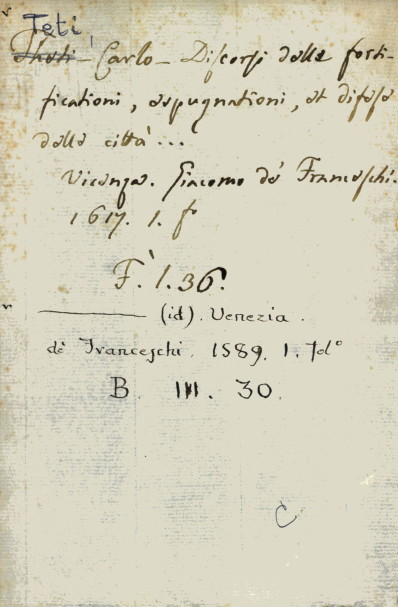 Teti,
Theti - Carlo - Discorsi delle forti-
ficationi, espugnationi, et difese
delle città ...
Vicenza. Giacomo de' Franceschi.
1617. 1. fo
F. 1. 36.
(id). Venezia.
de Franceschi. 1589. 1. fdo
B. III. 30.
C